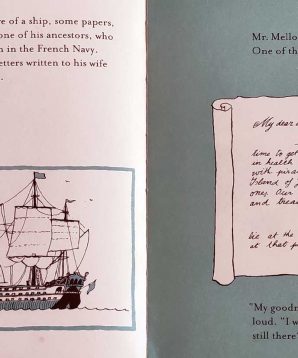 e of a ship, some papers,
one of his ancestors, who
n in the French Navy.
etters written to his wife
Mr. Mello
One of th
My dear
time to get
in health
with pira
Island of
ones. Our
and trea
lie at the
at that p
"My goodn
loud. "I w
still there